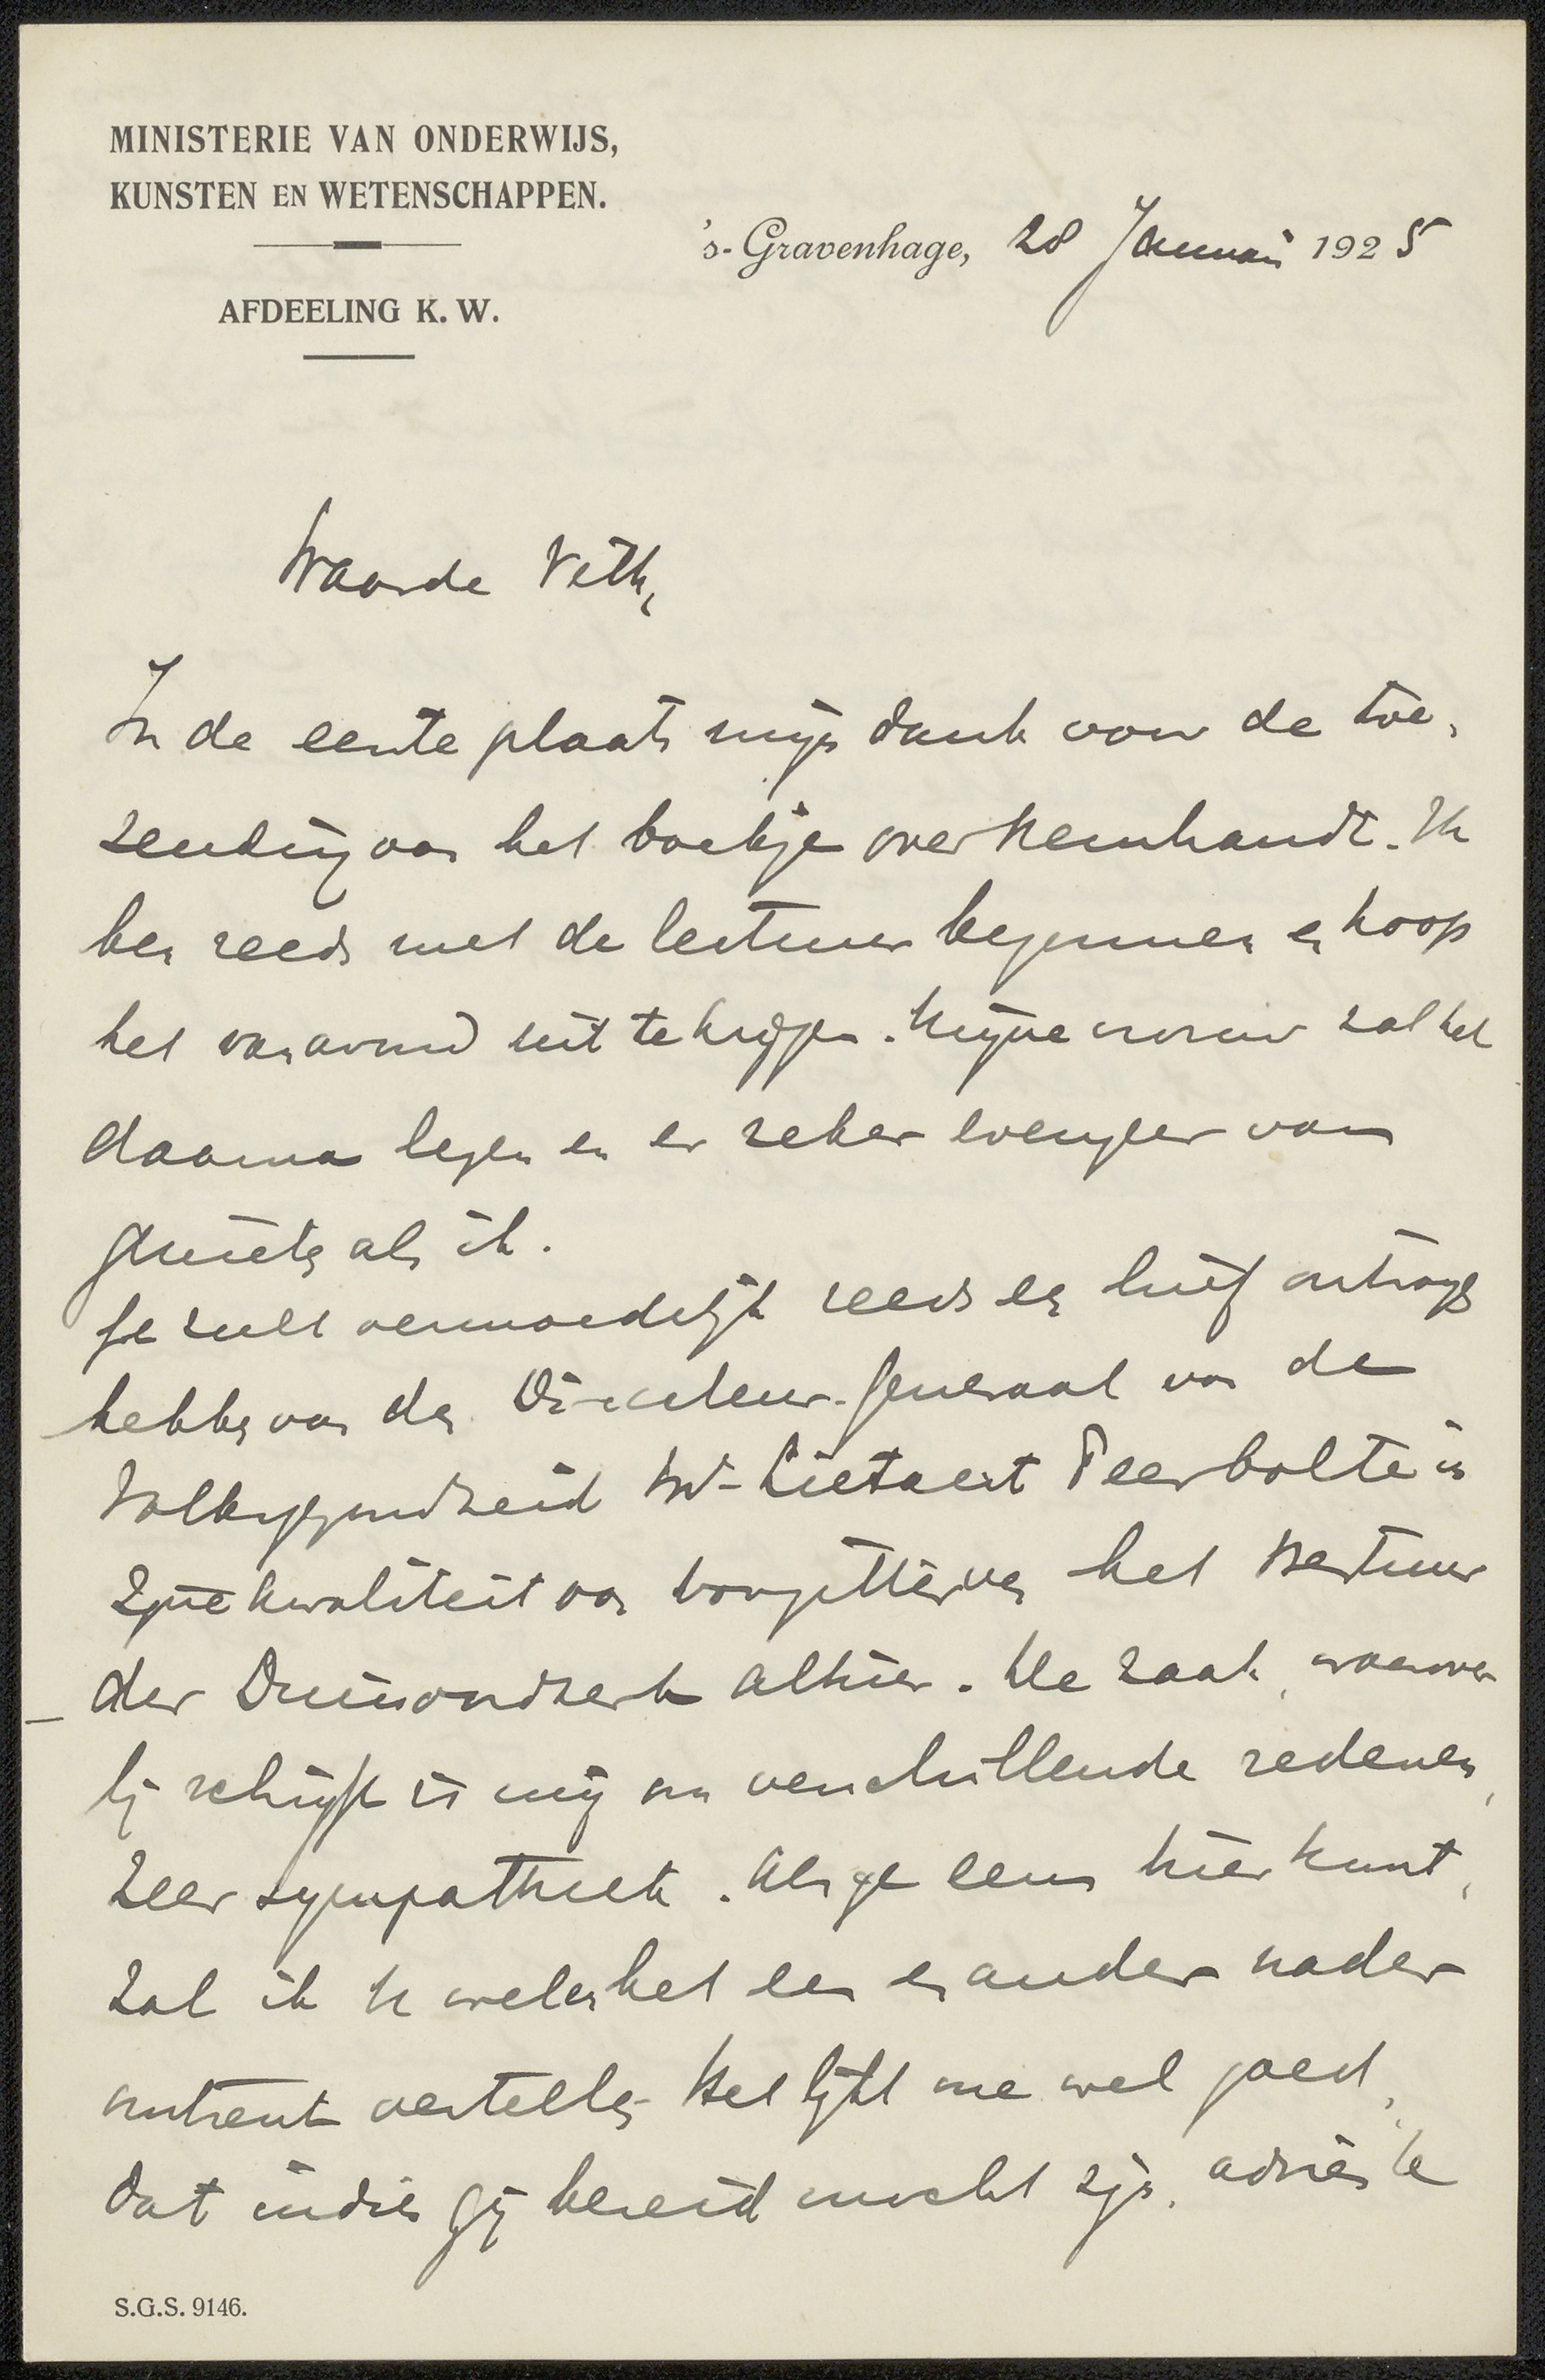 MINISTERIE VAN ONDERWIJS,
KUNSTEN EN WETENSCHAPPEN.
AFDEELING K. W.
's-Gravenhage, 28 Januari 1925
Waarde Veth,
In de eerste plaats mijn dank voor de toe-
zending van het boekje over Kernhandt. Ik
ben reeds met de lectuur begonnen en hoop
het vanavond uit te krijgen. Mijne vrouw zal het
daarna lezen en er zeker evenzeer van
genieten als ik.
Je zult vermoedelijk reeds een brief ontvangen
hebben van den Directeur-Generaal van de
Volksgezondheid Mr Lietaert Peerbolte in
zijne kwaliteit van voorzitter van het Bestuur
der Duinoordkerk alhier. De zaak, waarover
hij schrijft is mij om verschillende redenen,
zeer sympathiek. Als ge eens hier kunt,
zal ik U wel eens het een en ander nader
omtrent vertellen. Het lijkt me wel goed,
dat indien gij bereid mocht zijn, advies te
S.G.S. 9146.